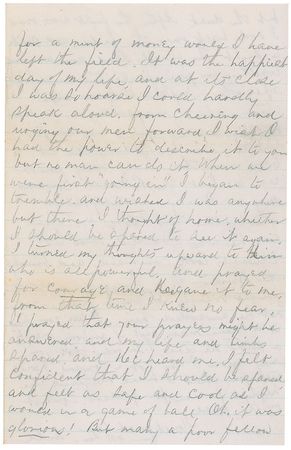 for a mint of money would I have
left the field. It was the happiest
day of my life, and at its close
I was so hoarse I could hardly
speak aloud, from cheering and
urging our men forward I wish I
had the power to describe it to you
but no man can do it. When we
were first "going in" I began to
tremble and wished I was anywhere
but there. I thought of home, whether
I should be spared to see it again,
I turned my thoughts upward to Him
who is all powerful, and prayed
for courage, and He gave it to me,
from that time I knew no fear,
I prayed that your prayers might be
answered and my life and limbs
spared, and He heard me, I felt
confident that I should be spared
and felt as safe and cool as I
would in a game of ball Oh, it was
glorious! But many a poor fellow